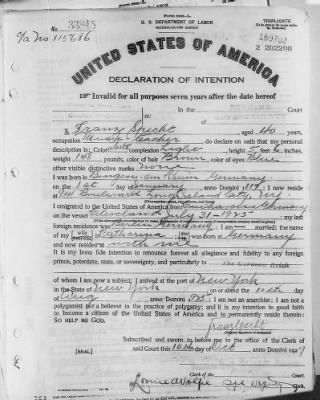 Form 2202-L
U. S. DEPARTMENT OF LABOR
NATURALIZATION SERVICE
TRIPLICATE
No. 33845
c/a No 115686
2 202200
UNITED STATES OF AMERICA
DECLARATION OF INTENTION
Invalid for all purposes seven years after the date hereof
In the
I, Franz Specht, aged 40 years,
occupation Music Teacher, do declare on oath that my personal
description is: Color white, complexion Light, height 5 feet 6 inches,
weight 148 pounds, color of hair Brown, color of eyes Blue
other visible distinctive marks none
I was born in Bingen am Rhein Germany
on the 1st day of January, anno Domini 1887; I now reside
at Long Island City, N.Y.
I emigrated to the United States of America from Germany
on the vessel Cleveland July 31-1925; my last
foreign residence was Berlin Germany; I am married; the name
of my wife is Katharina; she was born at Germany
and now resides at with me
It is my bona fide intention to renounce forever all allegiance and fidelity to any foreign
prince, potentate, state, or sovereignty, and particularly to The German Reich
of whom I am now a subject; I arrived at the port of New York
in the State of New York, on or about the 10th day
of Aug, anno Domini 1925; I am not an anarchist; I am not a
polygamist nor a believer in the practice of polygamy; and it is my intention in good faith
to become a citizen of the United States of America and to permanently reside therein:
SO HELP ME GOD.
Franz Specht
Subscribed and sworn to before me in the office of the Clerk of
[SEAL] said Court this 10th day of Oct anno Domini 1927
Clerk of the Court.